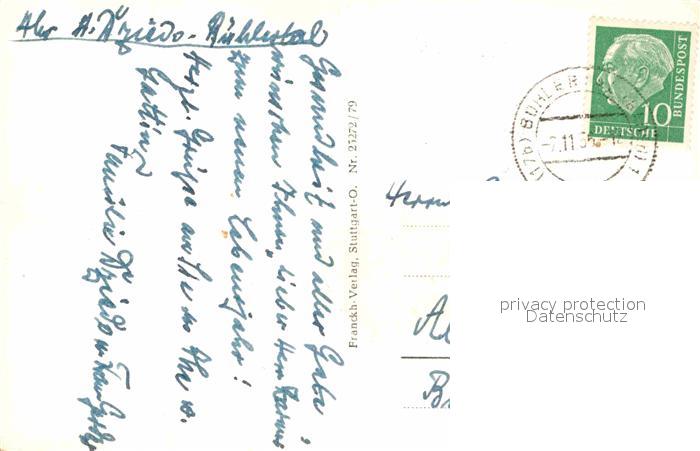 Abs. A. Dziedo - Bühlertal
Gesundheit und alles Gute
wünschen Ihnen, lieber Herr
zum neuen Lebensjahr!
Herzl. Grüße an Sie u. Ihre w.
Gattin
Familie
Franckh-Verlag, Stuttgart-O. Nr. 25272/79
BÜHLER
(17b)
10
DEUTSCHE
BUNDESPOST
Herrn
privacy protection
Datenschutz